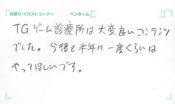 お便り/イラストコーナー ペンネーム
TGゲーム診療所は大変良いコンテンツ
でした。今後も半年に一度くらいは
やってほしいです。